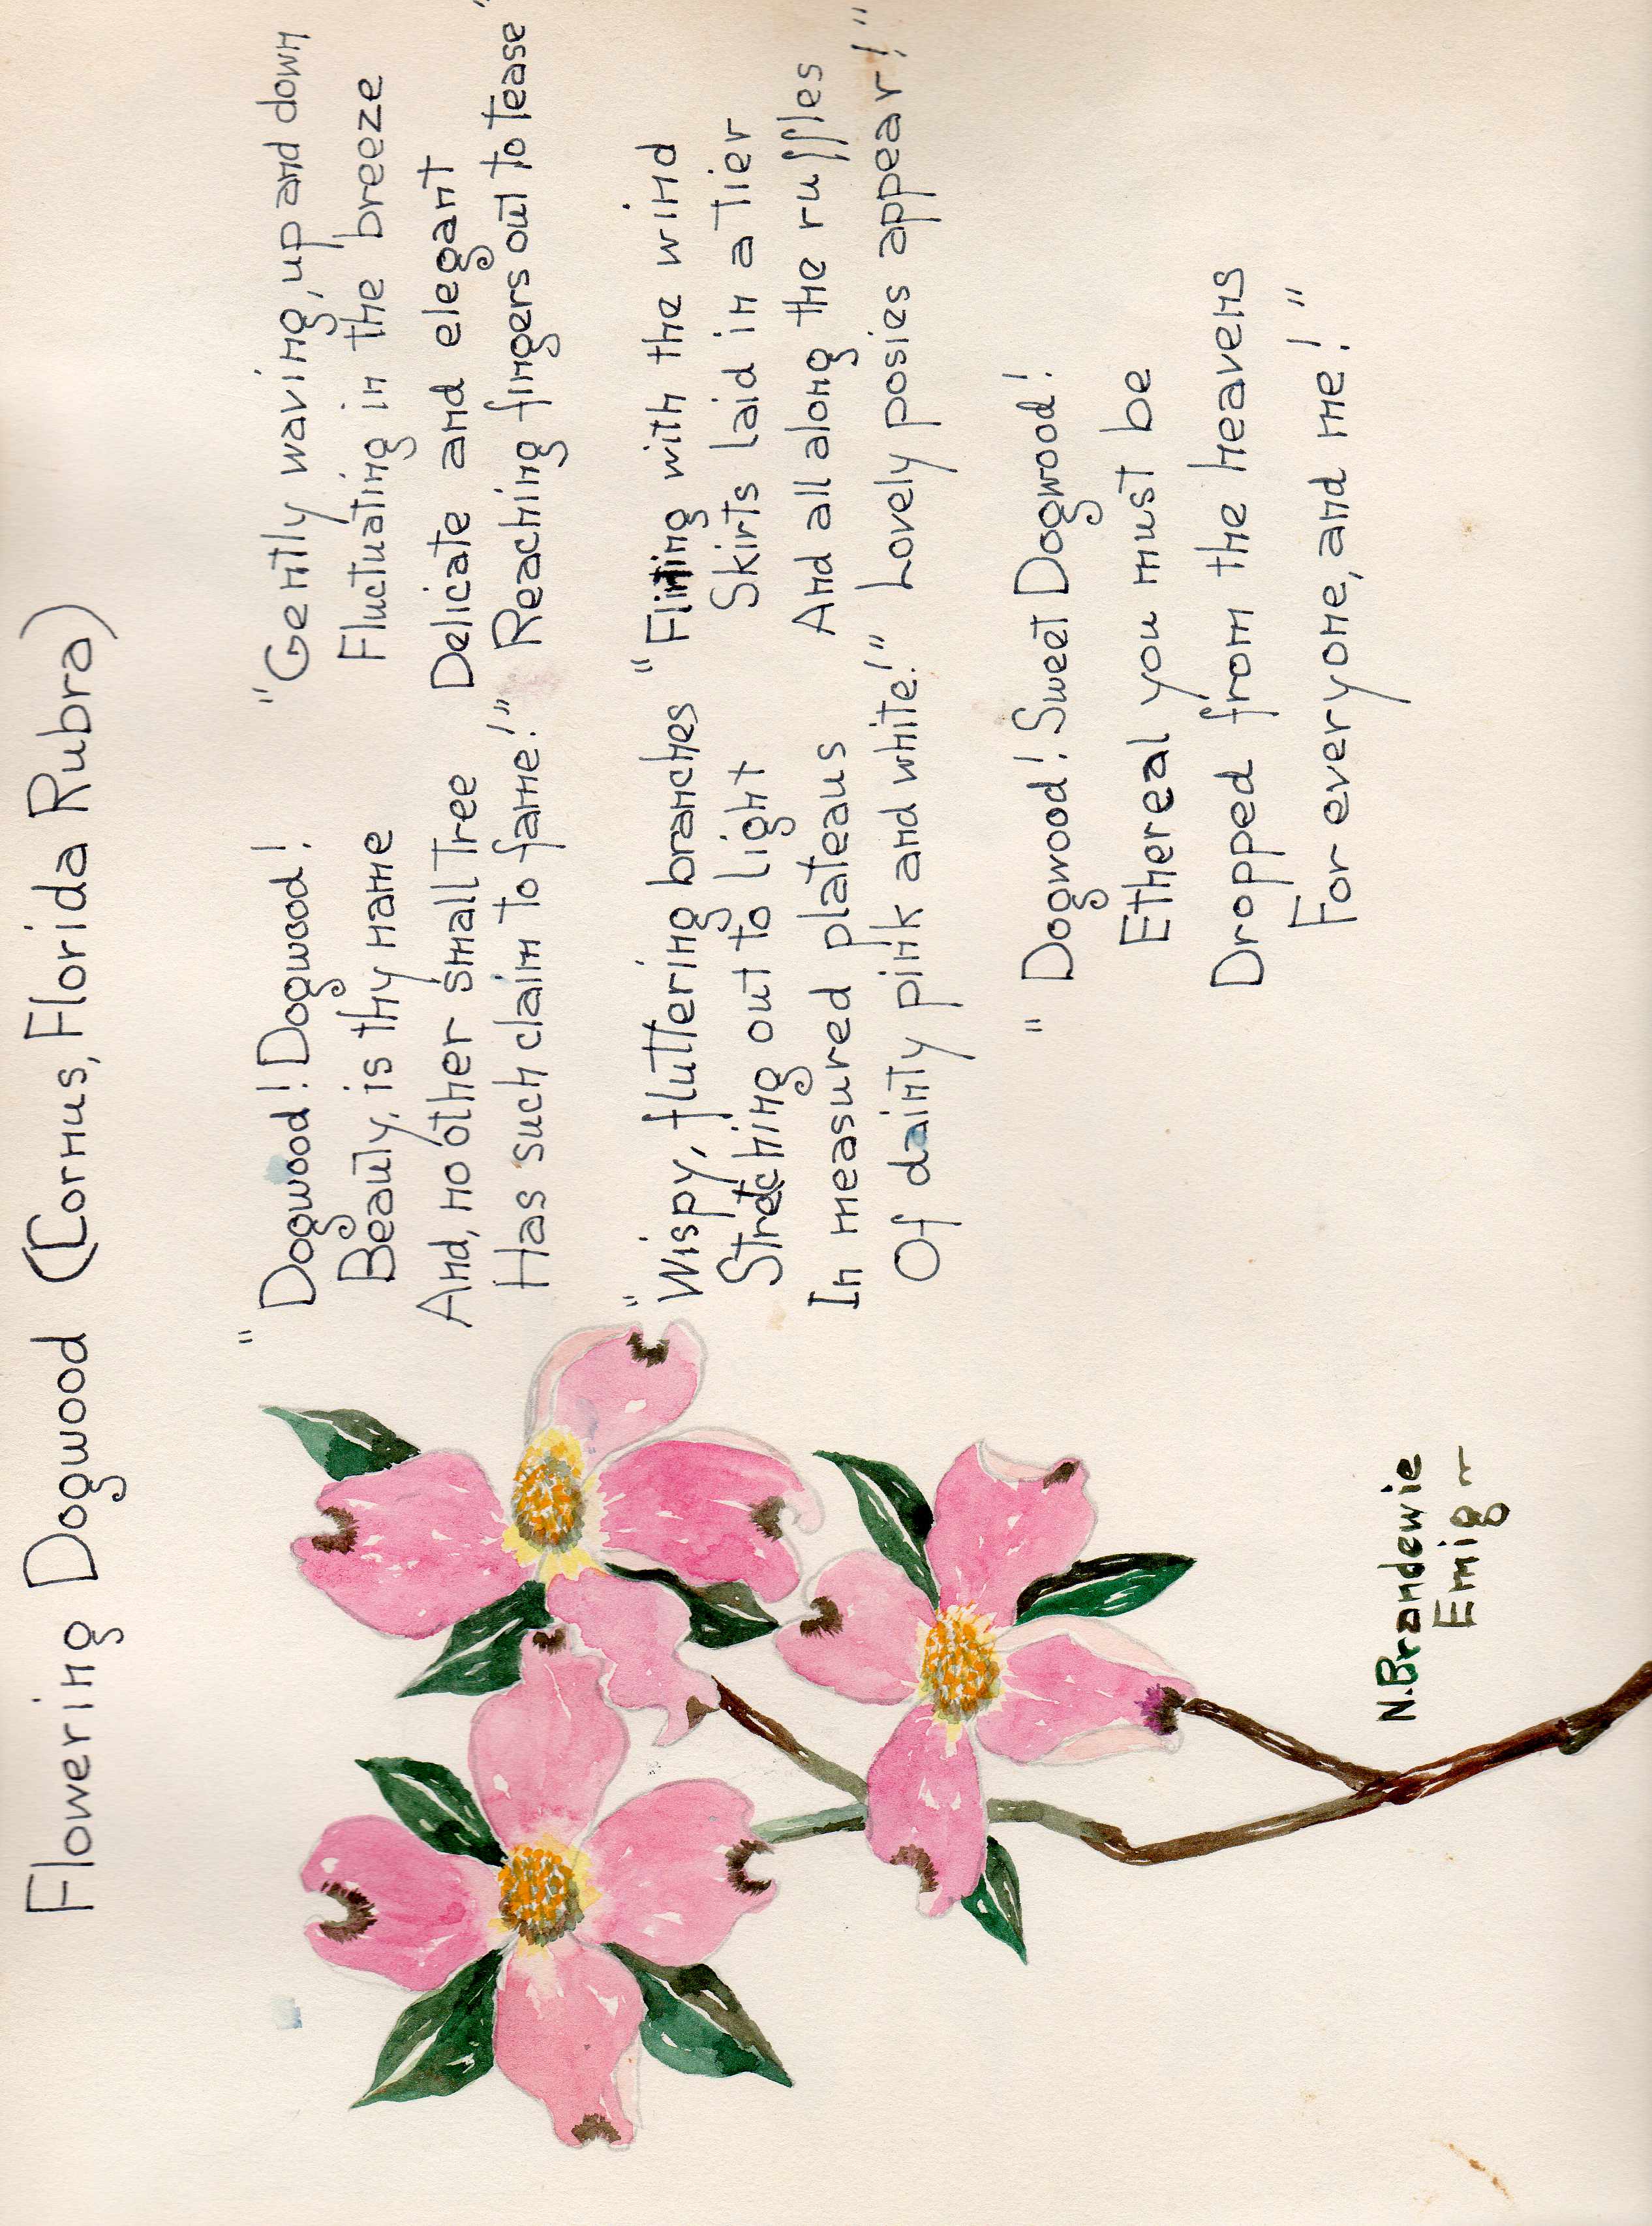 Flowering Dogwood (Cornus, Florida Rubra)
"Dogwood! Dogwood!
Beauty, is thy name
And, no other small Tree
Has such claim to fame!"
"Gently waving, up and down
Fluctuating in the breeze
Delicate and elegant
Reaching fingers out to tease"
"Wispy, fluttering branches
Stretching out to light
In measured plateaus
Of dainty pink and white!"
"Flirting with the wind
Skirts laid in a Tier
And all along the ruffles
Lovely posies appear!"
"Dogwood! Sweet Dogwood!
Ethereal you must be
Dropped from the heavens
For everyone, and me!"
N. Brandewie
Emig~